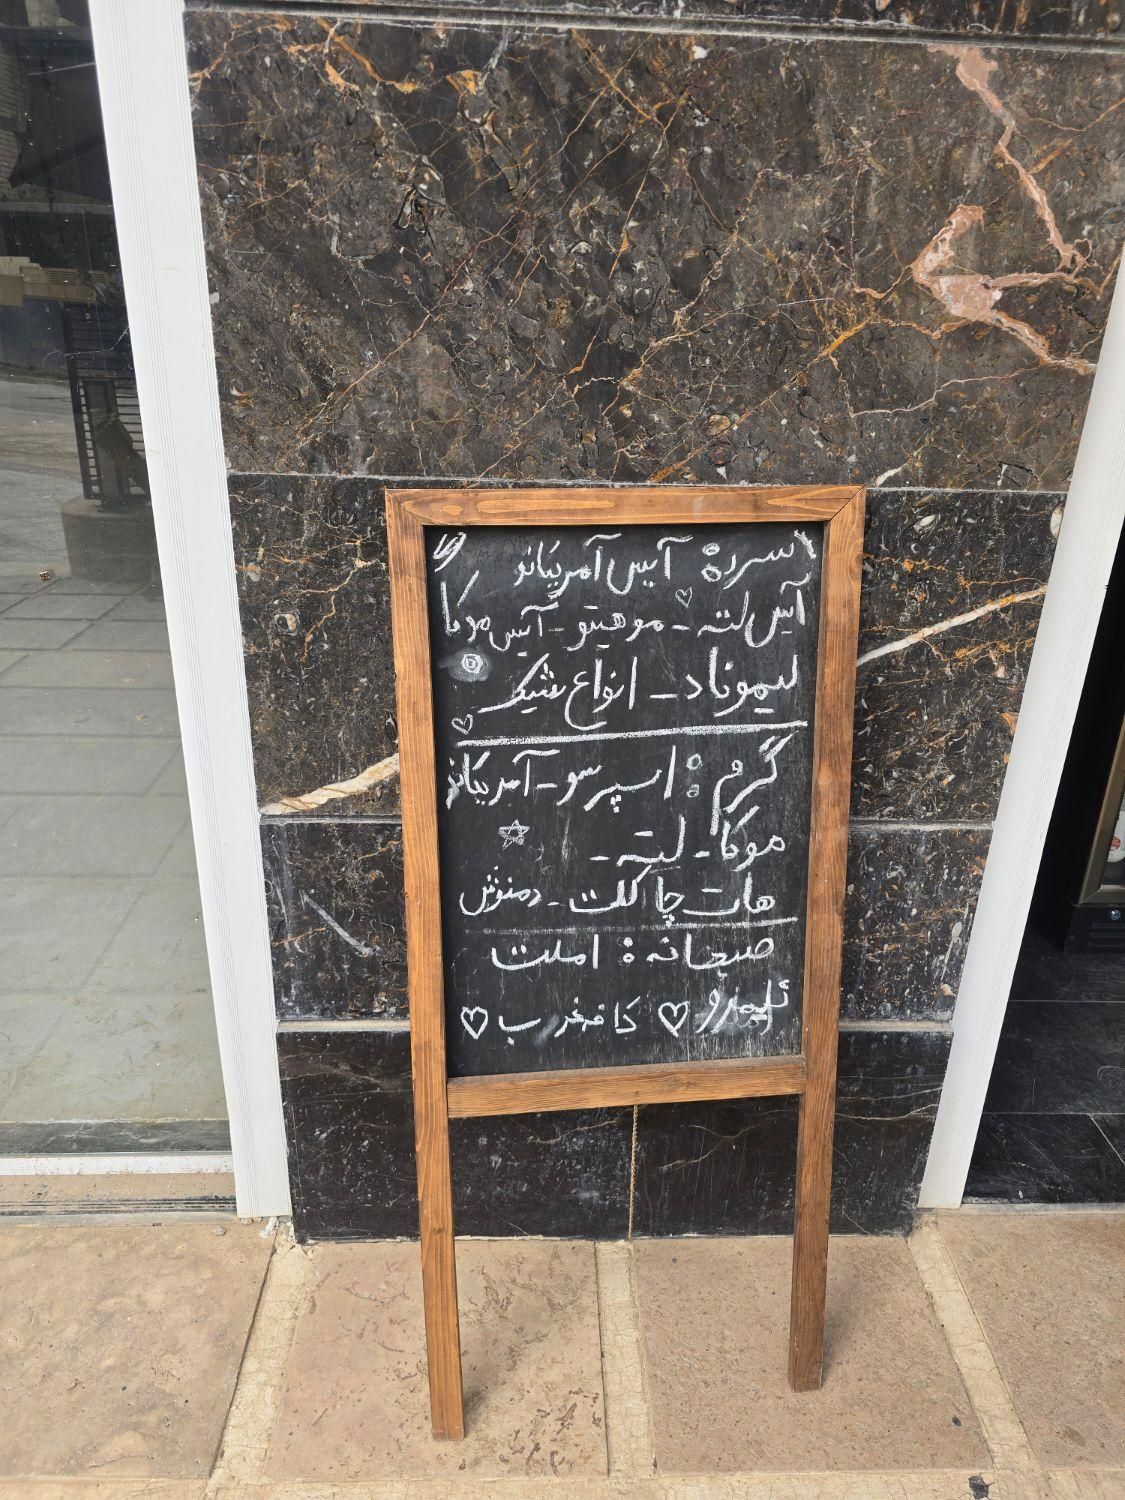 سرد: آیس آمریکانو
آیس لته - موهیتو - آیس موکا
لیموناد - انواع شیک
گرم: اسپرسو - آمریکانو
موکا - لته -
هات چاکلت - دمنوش
صبحانه: املت
نیمرو ♡ کافه غرب ♡